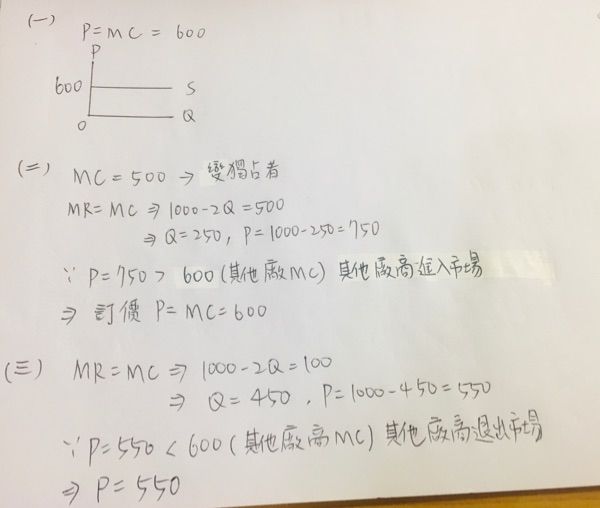 (一) P=MC = 600
P
600 S
0 Q
(二) MC=500 → 變獨占者
MR=MC ⇒ 1000-2Q=500
⇒ Q=250, P=1000-250=750
∵ P=750 > 600 (其他廠MC) 其他廠商進入市場
⇒ 訂價 P=MC=600
(三) MR=MC ⇒ 1000-2Q=100
⇒ Q=450, P=1000-450=550
∵ P=550 < 600 (其他廠商MC) 其他廠商退出市場
⇒ P=550